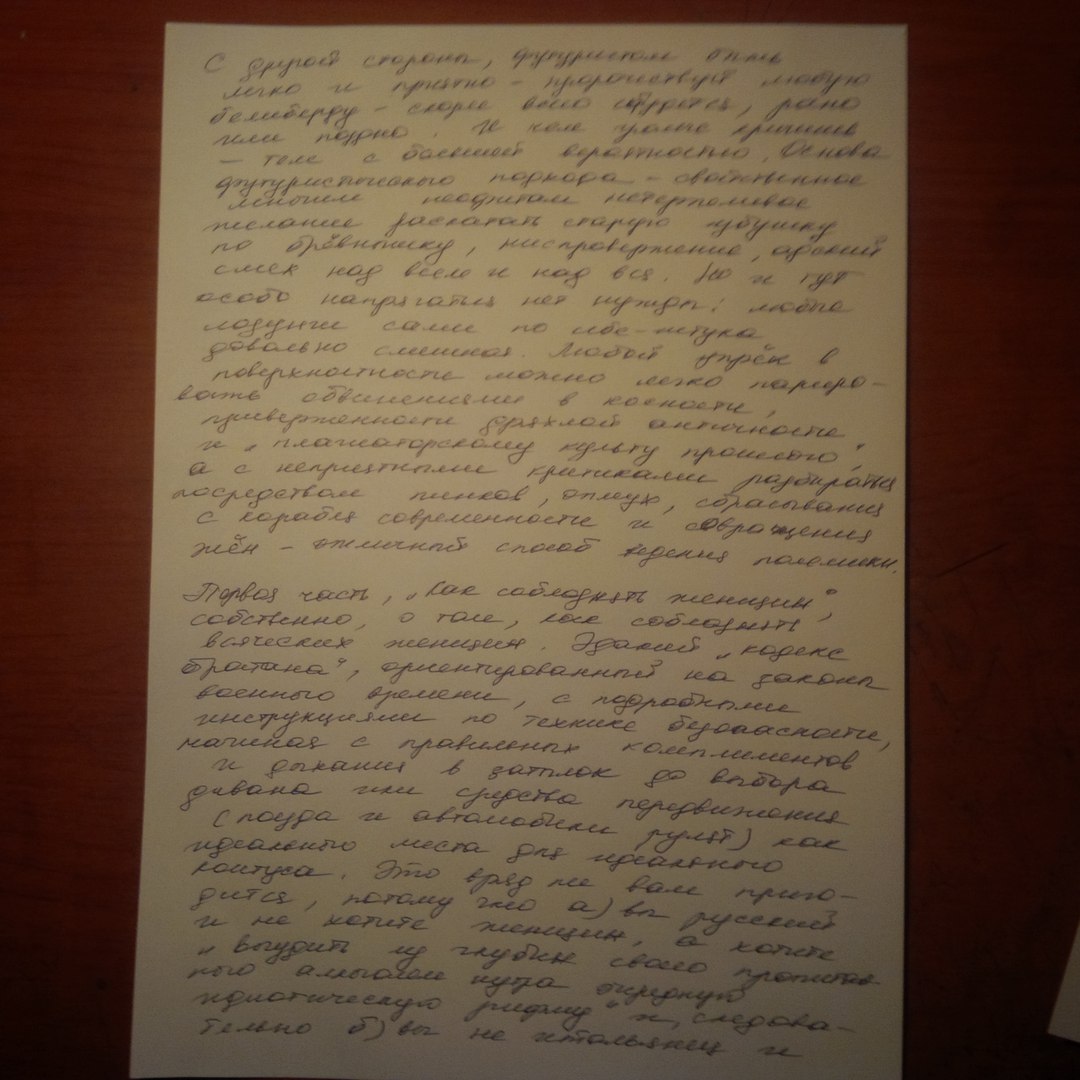 С другой стороны, футуристом быть
легко и приятно – пророчествуй любую
белиберду – скорее всего сбудется, рано
или поздно. И чем громче кричишь
– тем с большей вероятностью. Основа
футуристического подхода – свойственное
многим неофитам нетерпеливое
желание раскатать старую избушку
по брёвнышку, ниспровержение, адский
смех над всем и над вся. Но и тут
особо напрягаться нет нужды: любые
лозунги сами по себе – штука
довольно смешная. Любой упрёк в
поверхностности можно легко париро-
вать обвинениями в косности,
приверженности дряхлой античности
и „плагиаторскому культу прошлого“,
а с неприятными критиками разбираться
посредством пинков, оплеух, сбрасывания
с корабля современности и совращения
жён – отличный способ ведения полемики.
Первая часть, „Как соблазнять женщин“,
собственно, о том, как соблазнять
всяческих женщин. Эдакий „кодекс
братана“, ориентированный на законы
военного времени, с подробными
инструкциями по технике безопасности,
начиная с правильных комплиментов
и дыхания в затылок до выбора
дивана или средства передвижения
(поезда и автомобили рулят) как
идеального места для идеального
коитуса. Это вряд ли вам приго-
дится, потому что а) вы русский
и не хотите женщин, а хотите
„выудить из глубин своего пропитан-
ного алкоголем нутра очередную
идиотическую рифму“ и, следова-
тельно б) вы не итальянец и